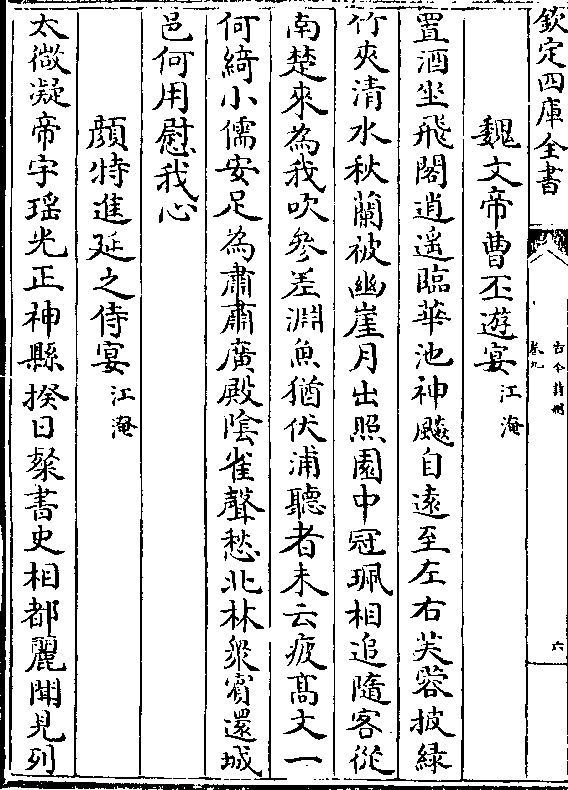 欽定四庫全書
古今詩刪
卷九
六
魏文帝曹丕遊宴江淹
置酒坐飛閣逍遥臨華池神飈自逺至左右芙蓉披緑
竹夾清水秋蘭被幽崖月出照園中冠珮相追隨客從
南楚來為我吹參差淵魚猶伏浦聽者未云疲髙文一
何綺小儒安足為肅肅廣殿隂雀聲愁北林衆賔還城
邑何用慰我心
顔特進延之侍宴江淹
太微凝帝宇瑶光正神縣揆日粲書史相都麗聞見列